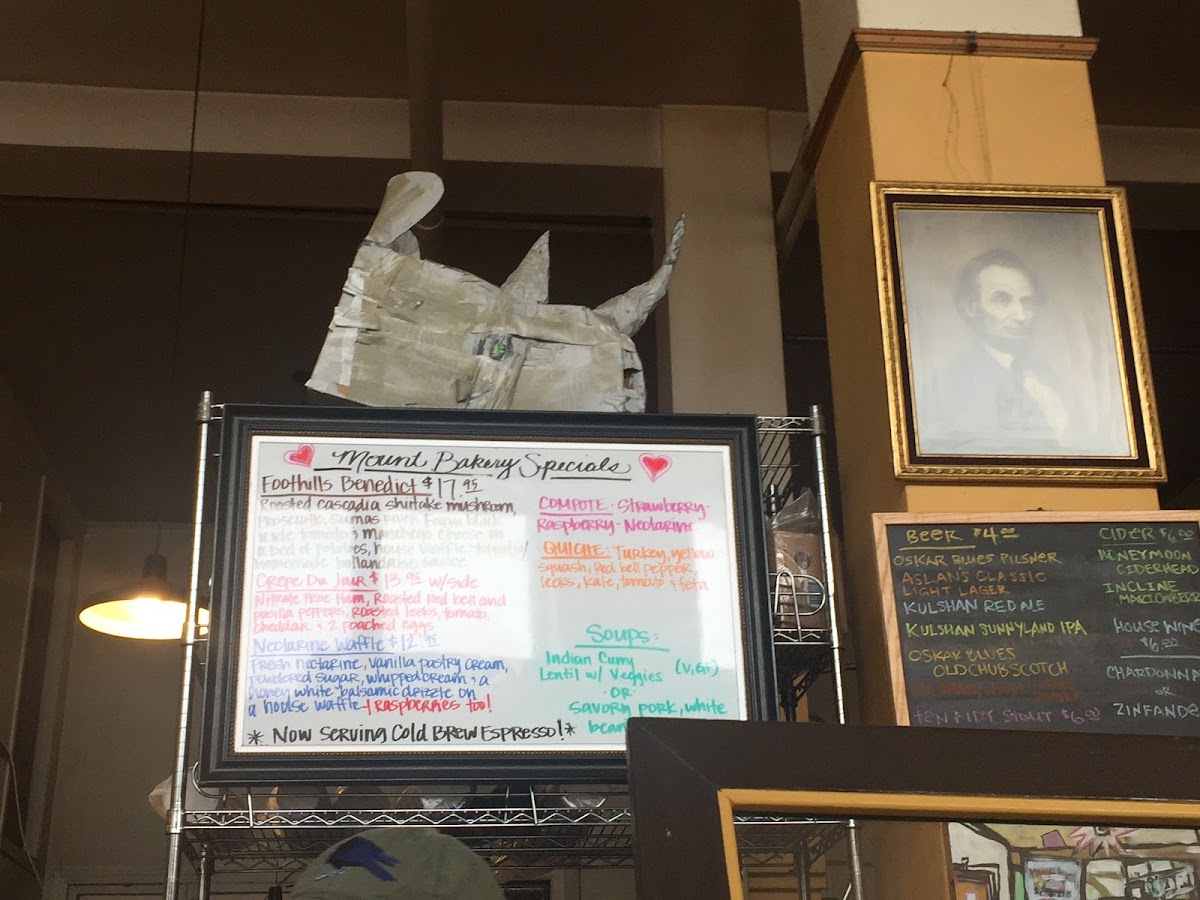 Mount Bakery Specials
Foothills Benedict $17.95
Roasted cascadia shiitake mushroom,
prosciutto, Sumas River Farm black
icicle tomato & manchego cheese on
a bed of potatoes, house waffle
homemade hollandaise sauce
Crepe Du Jour $13.95 w/side
Nitrate Free Ham, Roasted red bell and
pasilla peppers, Roasted leeks, tomato
cheddar & 2 poached eggs
Nectarine Waffle $12.95
Fresh nectarine, vanilla pastry cream,
powdered sugar, whipped cream & a
honey white balsamic drizzle on
a house waffle + raspberries too!
* Now serving Cold Brew Espresso! *
COMPOTE: Strawberry-
Raspberry-Nectarine
QUICHE: Turkey, yellow
squash, Red bell pepper,
leeks, kale, tomato & feta
Soups:
Indian Curry
Lentil w/ Veggies (V, GF)
OR
Savory pork, white
bean
BEER $4
OSKAR BLUES PILSNER
ASLAN'S CLASSIC
LIGHT LAGER
KULSHAN RED ALE
KULSHAN SUNNYLAND IPA
OSKAR BLUES
OLD CHUB SCOTCH
TEN FIDY STOUT $6
CIDER $6
HONEYMOON
CIDERHEAD
INCLINE
HOUSE WINE
$6
CHARDONNA
OR
ZINFANDE